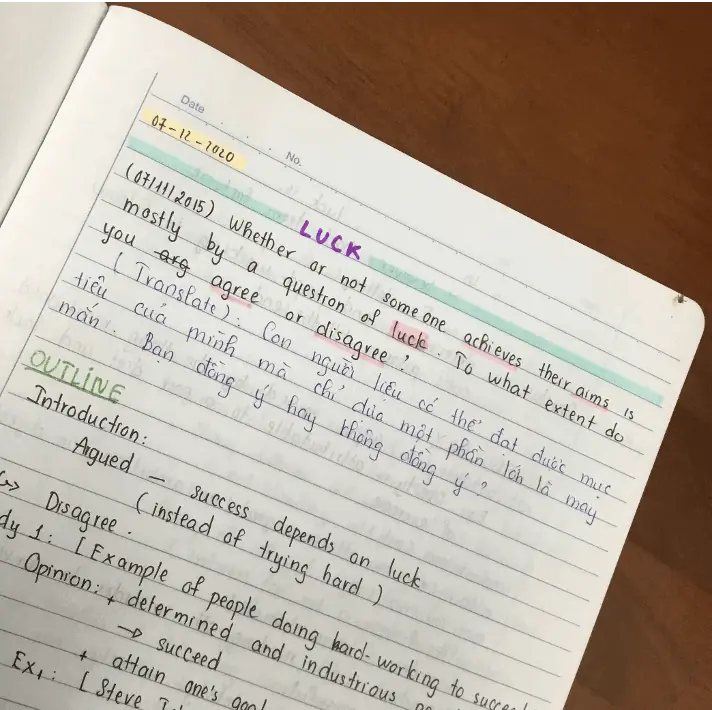 Date
07-12-2020
No.
LUCK
(07/11/2015) Whether or not someone achieves their aims is
mostly by a question of luck. To what extent do
you arg agree or disagree?
(Translate): Con người liệu có thể đạt được mục
tiêu của mình mà chỉ dựa một phần lớn là may
mắn. Bạn đồng ý hay không đồng ý?
OUTLINE
Introduction:
Argued — success depends on luck
(instead of trying hard)
Disagree.
dy 1: [Example of people doing hard-working to
Opinion: + determined and industrious
→ succeed
+ attain one's goal
Ex1: [Steve